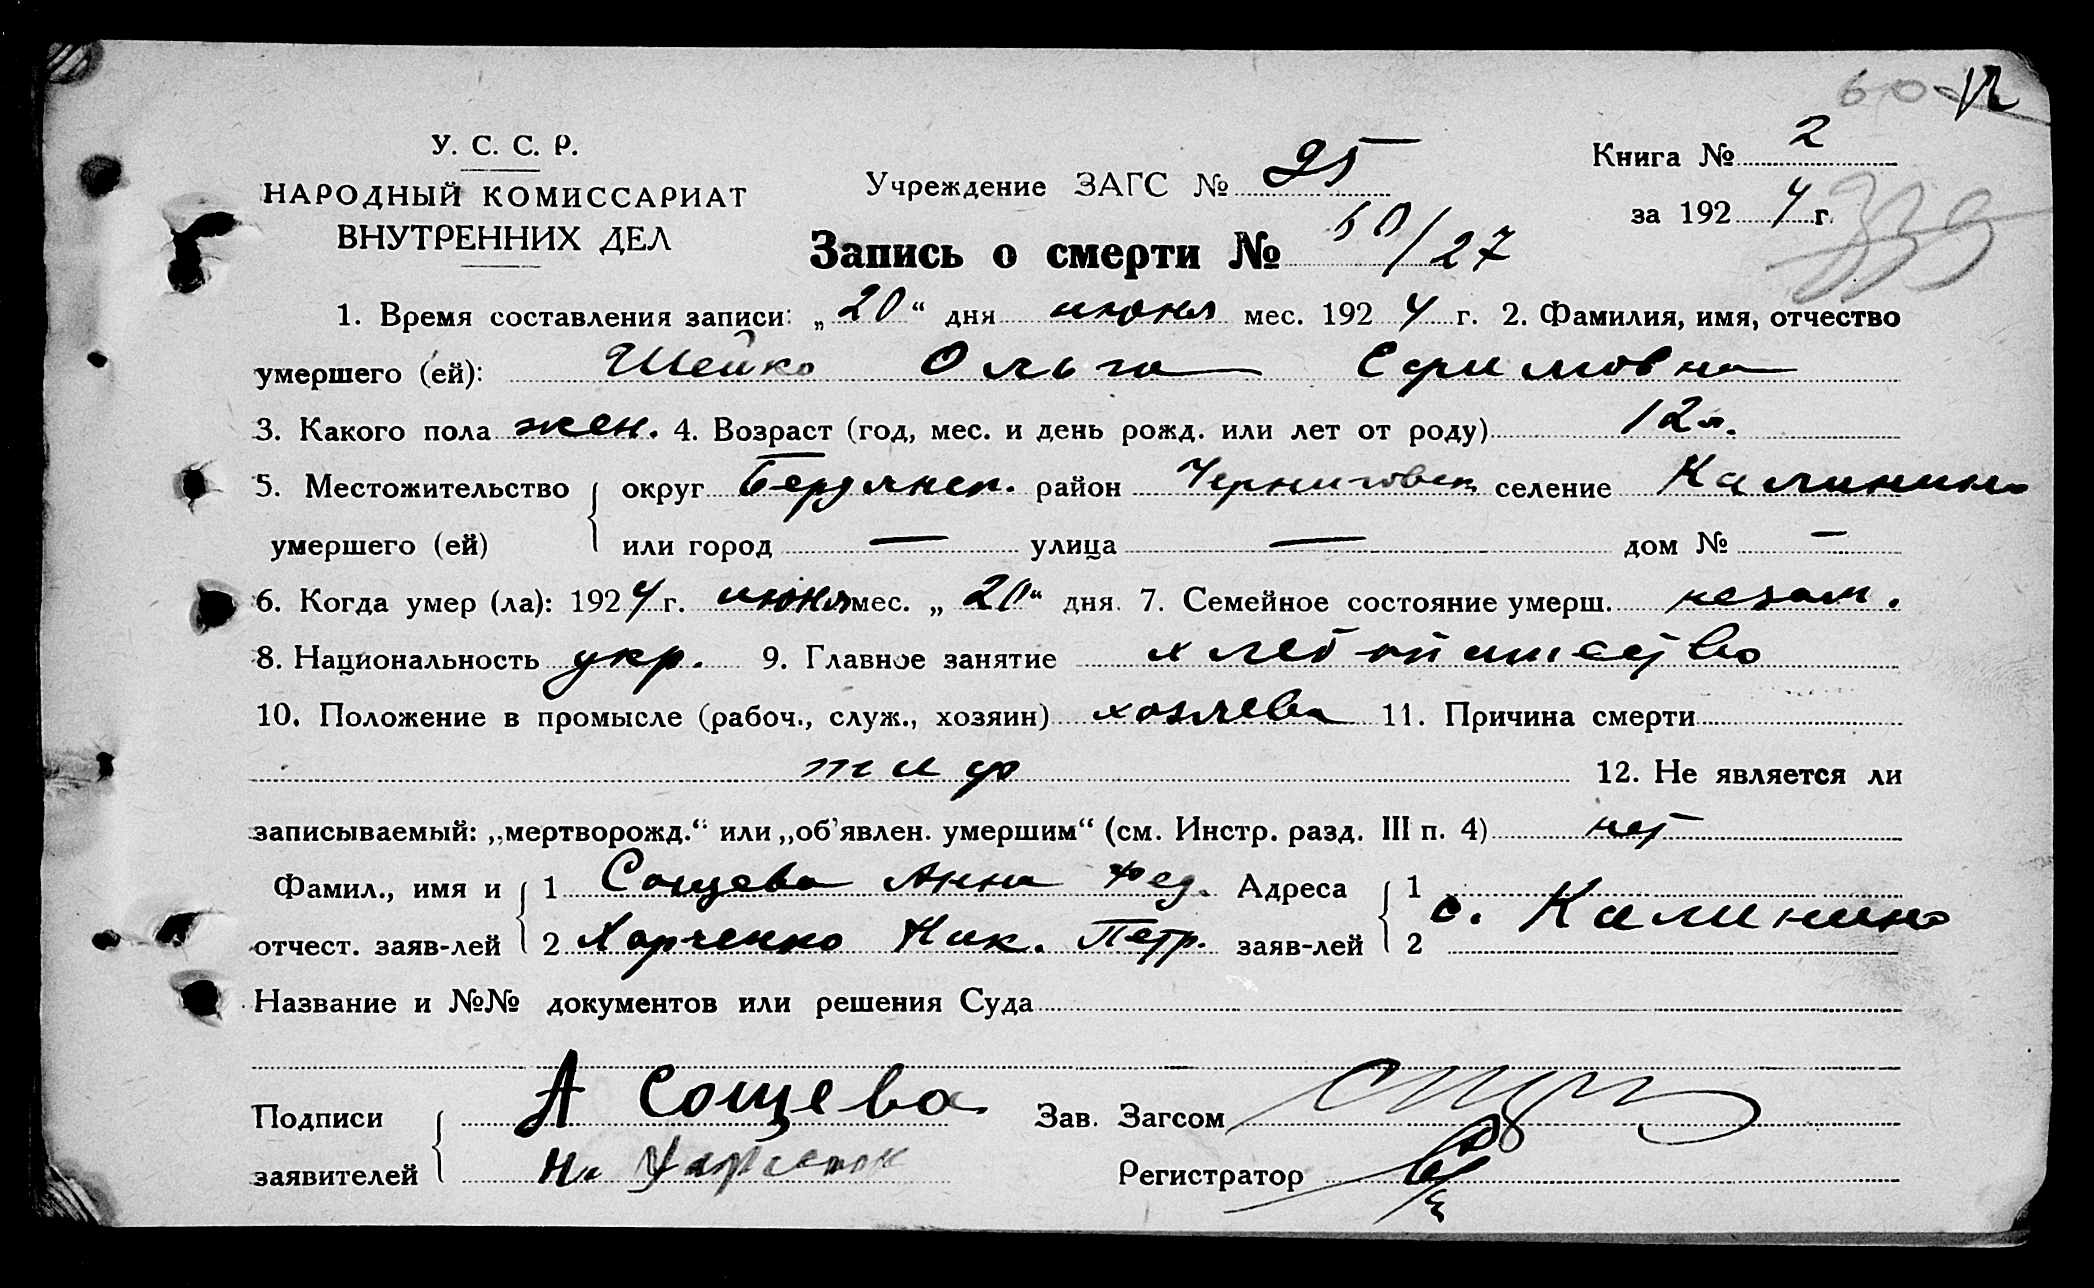 60 12
У. С. С. Р.
НАРОДНЫЙ КОМИССАРИАТ
ВНУТРЕННИХ ДЕЛ
Учреждение ЗАГС № 95
Книга № 2
за 1924 г.
339
Запись о смерти № 60/27
1. Время составления записи: „20“ дня июня мес. 1924 г. 2. Фамилия, имя, отчество
умершего (ей): Шейко Ольга Ефимовна
3. Какого пола жен. 4. Возраст (год, мес. и день рожд. или лет от роду) 12 л.
5. Местожительство округ Бердянск. район Черниговск селение Калинино
умершего (ей) или город — улица — дом № —
6. Когда умер (ла): 1924 г. июня мес. „20“ дня. 7. Семейное состояние умерш. незам.
8. Национальность укр. 9. Главное занятие хлебопашество
10. Положение в промысле (рабоч., служ., хозяин) 11. Причина смерти
тиф 12. Не является ли
записываемый: „мертворожд.“ или „об’явлен. умершим“ (см. Инстр. разд. III п. 4) нет
Фамил., имя и 1 Сощева Анна Фед. Адреса 1
с. Калинино
отчест. заяв-лей 2 Харченко Ник. Петр. заяв-лей 2
Название и №№ документов или решения Суда
Подписи А Сощева Зав. Загсом
заявителей Н. Регистратор